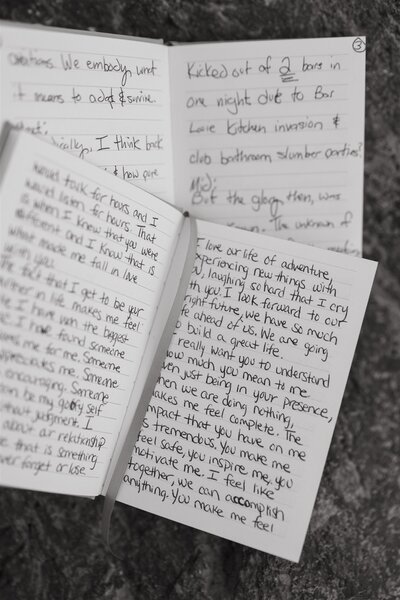 creations. We embody what
it means to adapt & survive.
I think back
& how pure
3
Kicked out of 2 bars in
one night due to Bar
Louie Kitchen invasion &
club bathroom slumber parties?
But the glory then, was
The unknown of
would talk for hours and I
would listen for hours. That
is when I knew that you were
different and I know that is
what made me fall in love
with you.
The fact that I get to be your
in life makes me feel
I have won the biggest
found someone
for me. Someone
me. Someone
encouraging. Someone
can be my goofy self
without judgment. I
about our relationship
that is something
never forget or lose.
I love our life of adventure,
experiencing new things with
you, laughing so hard that I cry
with you. I look forward to our
bright future, we have so much
life ahead of us. We are going
to build a great life.
I really want you to understand
how much you mean to me.
Even just being in your presence,
when we are doing nothing,
makes me feel complete. The
impact that you have on me
is tremendous. You make me
feel safe, you inspire me, you
motivate me. I feel like
together, we can accomplish
anything. You make me feel